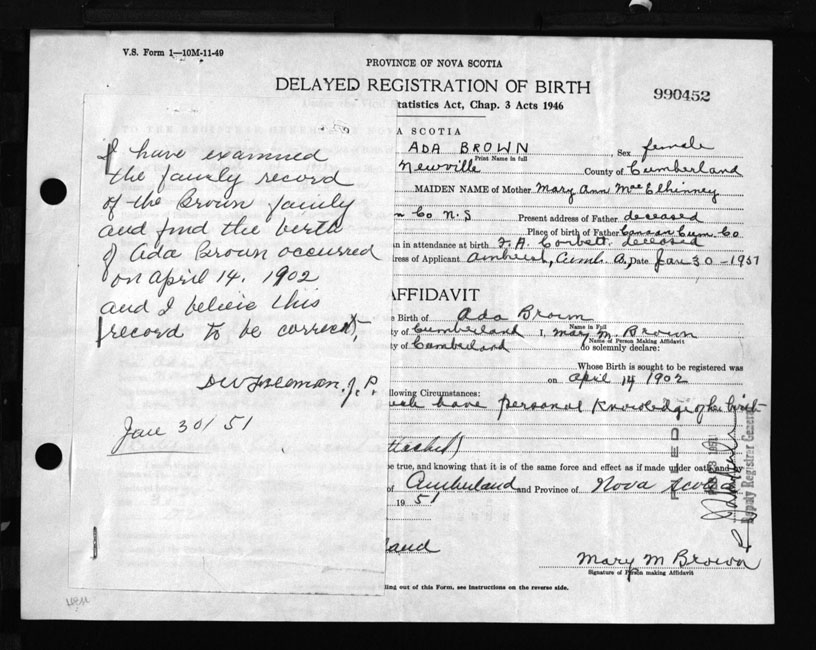 V.S. Form 1—10M-11-49
PROVINCE OF NOVA SCOTIA
DELAYED REGISTRATION OF BIRTH
990452
tatistics Act, Chap. 3 Acts 1946
A SCOTIA
ADA BROWN Sex female
Print Name in full
Newville County of Cumberland
MAIDEN NAME of Mother Mary Ann MacElhinney
n Co N.S Present address of Father deceased
Place of birth of Father Canaan Cum. Co
an in attendance at birth F. A. Corbett. deceased
ress of Applicant Amherst, Cumb. Date Jan 30 - 1951
AFFIDAVIT
e Birth of Ada Brown
Name in Full
ty of Cumberland I, Mary M. Brown
Name of Person Making Affidavit
ty of Cumberland do solemnly declare:
Whose Birth is sought to be registered was
on April 14 1902
llowing Circumstances:
have personal knowledge of her birth
ttached)
be true, and knowing that it is of the same force and effect as if made under oath and by
of Cumberland and Province of Nova Scotia
19 51
land
Mary M Brown
Signature of Person making Affidavit
ling out of this Form, see instructions on the reverse side.
I have examined
the family record
of the Brown family
and find the birth
of Ada Brown occurred
on April 14. 1902
and I believe this
record to be correct,
J. P.
Jan 30/51
Deputy Registrar General